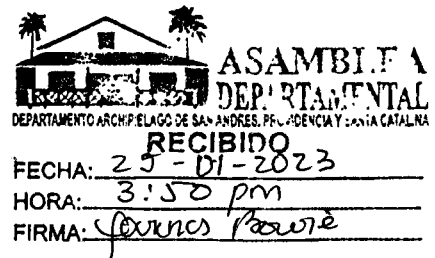 ASAMBLEA
DEPARTAMENTAL
DEPARTAMENTO ARCHIPIELAGO DE SAN ANDRES, PROVIDENCIA Y SANTA CATALINA
RECIBIDO
FECHA: 25-01-2023
HORA: 3:50 pm
FIRMA: